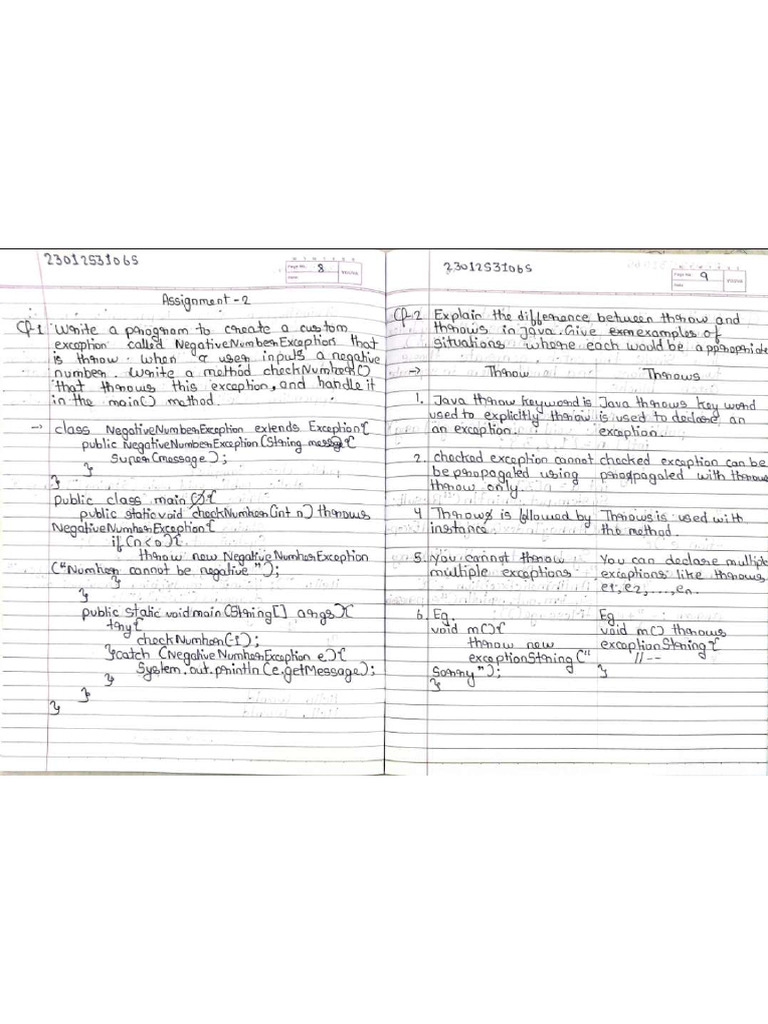 23012531065
Page No. 8
Date
YOUVA
Assignment -2
Q-1 Write a program to create a custom
exception called NegativeNumberException that
is throw. when a user inputs a negative
number. Write a method checkNumber()
that throws this exception, and handle it
in the main() method.
-> class NegativeNumberException extends Exception{
public NegativeNumberException(String message){
super(message);
}
}
public class main {
public static void checkNumber(int n) throws
NegativeNumberException{
if(n<0){
throw new NegativeNumberException
("Number cannot be negative");
}
}
public static void main(String[] args){
try{
checkNumber(-1);
}catch (NegativeNumberException e){
System.out.println(e.getMessage);
}
}
}
23012531065
Page No. 9
Date
YOUVA
Q-2 Explain the difference between throw and
throws in java. Give examples of
situations where each would be appropriate
-> Throw Throws
1. Java throw keyword is Java throws keyword
used to explicitly throw is used to declare an
an exception. exception.
2. checked exception cannot checked exception can be
be propagated using propagated with throws
throw only.
4 Throws is followed by Throws is used with
instance. the method.
5. You cannot throw You can declare multiple
multiple exceptions exceptions like throws
e1, e2, ..., en.
6. Eg. Eg.
void m(){ void m() throws
throw new exceptionString{
exceptionString(" //--
Sorry"); }
}